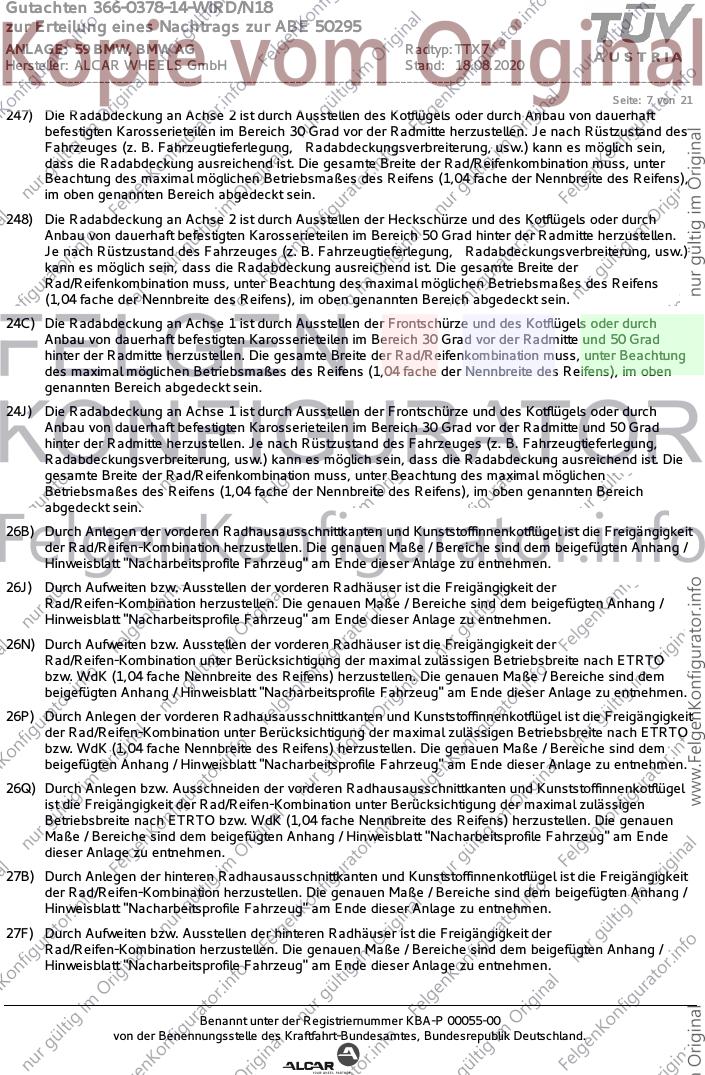 Gutachten 366-0378-14-WIRD/N18
zur Erteilung eines Nachtrags zur ABE 50295
ANLAGE: 59 BMW, BMW AG
Hersteller: ALCAR WHEELS GmbH
Radtyp: TTX7
Stand: 18.08.2020
TÜV
AUSTRIA
Kopie vom Original
Seite: 7 von 21
247) Die Radabdeckung an Achse 2 ist durch Ausstellen des Kotflügels oder durch Anbau von dauerhaft
befestigten Karosserieteilen im Bereich 30 Grad vor der Radmitte herzustellen. Je nach Rüstzustand des
Fahrzeuges (z. B. Fahrzeugtieferlegung, Radabdeckungsverbreiterung, usw.) kann es möglich sein,
dass die Radabdeckung ausreichend ist. Die gesamte Breite der Rad/Reifenkombination muss, unter
Beachtung des maximal möglichen Betriebsmaßes des Reifens (1,04 fache der Nennbreite des Reifens),
im oben genannten Bereich abgedeckt sein.
248) Die Radabdeckung an Achse 2 ist durch Ausstellen der Heckschürze und des Kotflügels oder durch
Anbau von dauerhaft befestigten Karosserieteilen im Bereich 50 Grad hinter der Radmitte herzustellen.
Je nach Rüstzustand des Fahrzeuges (z. B. Fahrzeugtieferlegung, Radabdeckungsverbreiterung, usw.)
kann es möglich sein, dass die Radabdeckung ausreichend ist. Die gesamte Breite der
Rad/Reifenkombination muss, unter Beachtung des maximal möglichen Betriebsmaßes des Reifens
(1,04 fache der Nennbreite des Reifens), im oben genannten Bereich abgedeckt sein.
24C) Die Radabdeckung an Achse 1 ist durch Ausstellen der Frontschürze und des Kotflügels oder durch
Anbau von dauerhaft befestigten Karosserieteilen im Bereich 30 Grad vor der Radmitte und 50 Grad
hinter der Radmitte herzustellen. Die gesamte Breite der Rad/Reifenkombination muss, unter Beachtung
des maximal möglichen Betriebsmaßes des Reifens (1,04 fache der Nennbreite des Reifens), im oben
genannten Bereich abgedeckt sein.
24J) Die Radabdeckung an Achse 1 ist durch Ausstellen der Frontschürze und des Kotflügels oder durch
Anbau von dauerhaft befestigten Karosserieteilen im Bereich 30 Grad vor der Radmitte und 50 Grad
hinter der Radmitte herzustellen. Je nach Rüstzustand des Fahrzeuges (z. B. Fahrzeugtieferlegung,
Radabdeckungsverbreiterung, usw.) kann es möglich sein, dass die Radabdeckung ausreichend ist. Die
gesamte Breite der Rad/Reifenkombination muss, unter Beachtung des maximal möglichen
Betriebsmaßes des Reifens (1,04 fache der Nennbreite des Reifens), im oben genannten Bereich
abgedeckt sein.
26B) Durch Anlegen der vorderen Radhausausschnittkanten und Kunststoffinnenkotflügel ist die Freigängigkeit
der Rad/Reifen-Kombination herzustellen. Die genauen Maße / Bereiche sind dem beigefügten Anhang /
Hinweisblatt "Nacharbeitsprofile Fahrzeug" am Ende dieser Anlage zu entnehmen.
26J) Durch Aufweiten bzw. Ausstellen der vorderen Radhäuser ist die Freigängigkeit der
Rad/Reifen-Kombination herzustellen. Die genauen Maße / Bereiche sind dem beigefügten Anhang /
Hinweisblatt "Nacharbeitsprofile Fahrzeug" am Ende dieser Anlage zu entnehmen.
26N) Durch Aufweiten bzw. Ausstellen der vorderen Radhäuser ist die Freigängigkeit der
Rad/Reifen-Kombination unter Berücksichtigung der maximal zulässigen Betriebsbreite nach ETRTO
bzw. WdK (1,04 fache Nennbreite des Reifens) herzustellen. Die genauen Maße / Bereiche sind dem
beigefügten Anhang / Hinweisblatt "Nacharbeitsprofile Fahrzeug" am Ende dieser Anlage zu entnehmen.
26P) Durch Anlegen der vorderen Radhausausschnittkanten und Kunststoffinnenkotflügel ist die Freigängigkeit
der Rad/Reifen-Kombination unter Berücksichtigung der maximal zulässigen Betriebsbreite nach ETRTO
bzw. WdK (1,04 fache Nennbreite des Reifens) herzustellen. Die genauen Maße / Bereiche sind dem
beigefügten Anhang / Hinweisblatt "Nacharbeitsprofile Fahrzeug" am Ende dieser Anlage zu entnehmen.
26Q) Durch Anlegen bzw. Ausschneiden der vorderen Radhausausschnittkanten und Kunststoffinnenkotflügel
ist die Freigängigkeit der Rad/Reifen-Kombination unter Berücksichtigung der maximal zulässigen
Betriebsbreite nach ETRTO bzw. WdK (1,04 fache Nennbreite des Reifens) herzustellen. Die genauen
Maße / Bereiche sind dem beigefügten Anhang / Hinweisblatt "Nacharbeitsprofile Fahrzeug" am Ende
dieser Anlage zu entnehmen.
27B) Durch Anlegen der hinteren Radhausausschnittkanten und Kunststoffinnenkotflügel ist die Freigängigkeit
der Rad/Reifen-Kombination herzustellen. Die genauen Maße / Bereiche sind dem beigefügten Anhang /
Hinweisblatt "Nacharbeitsprofile Fahrzeug" am Ende dieser Anlage zu entnehmen.
27F) Durch Aufweiten bzw. Ausstellen der hinteren Radhäuser ist die Freigängigkeit der
Rad/Reifen-Kombination herzustellen. Die genauen Maße / Bereiche sind dem beigefügten Anhang /
Hinweisblatt "Nacharbeitsprofile Fahrzeug" am Ende dieser Anlage zu entnehmen.
FELGEN
KONFIGURATOR
FelgenKonfigurator.info
nur gültig im Original
www.FelgenKonfigurator.info
Benannt unter der Registriernummer KBA-P 00055-00
von der Benennungsstelle des Kraftfahrt-Bundesamtes, Bundesrepublik Deutschland.
ALCAR